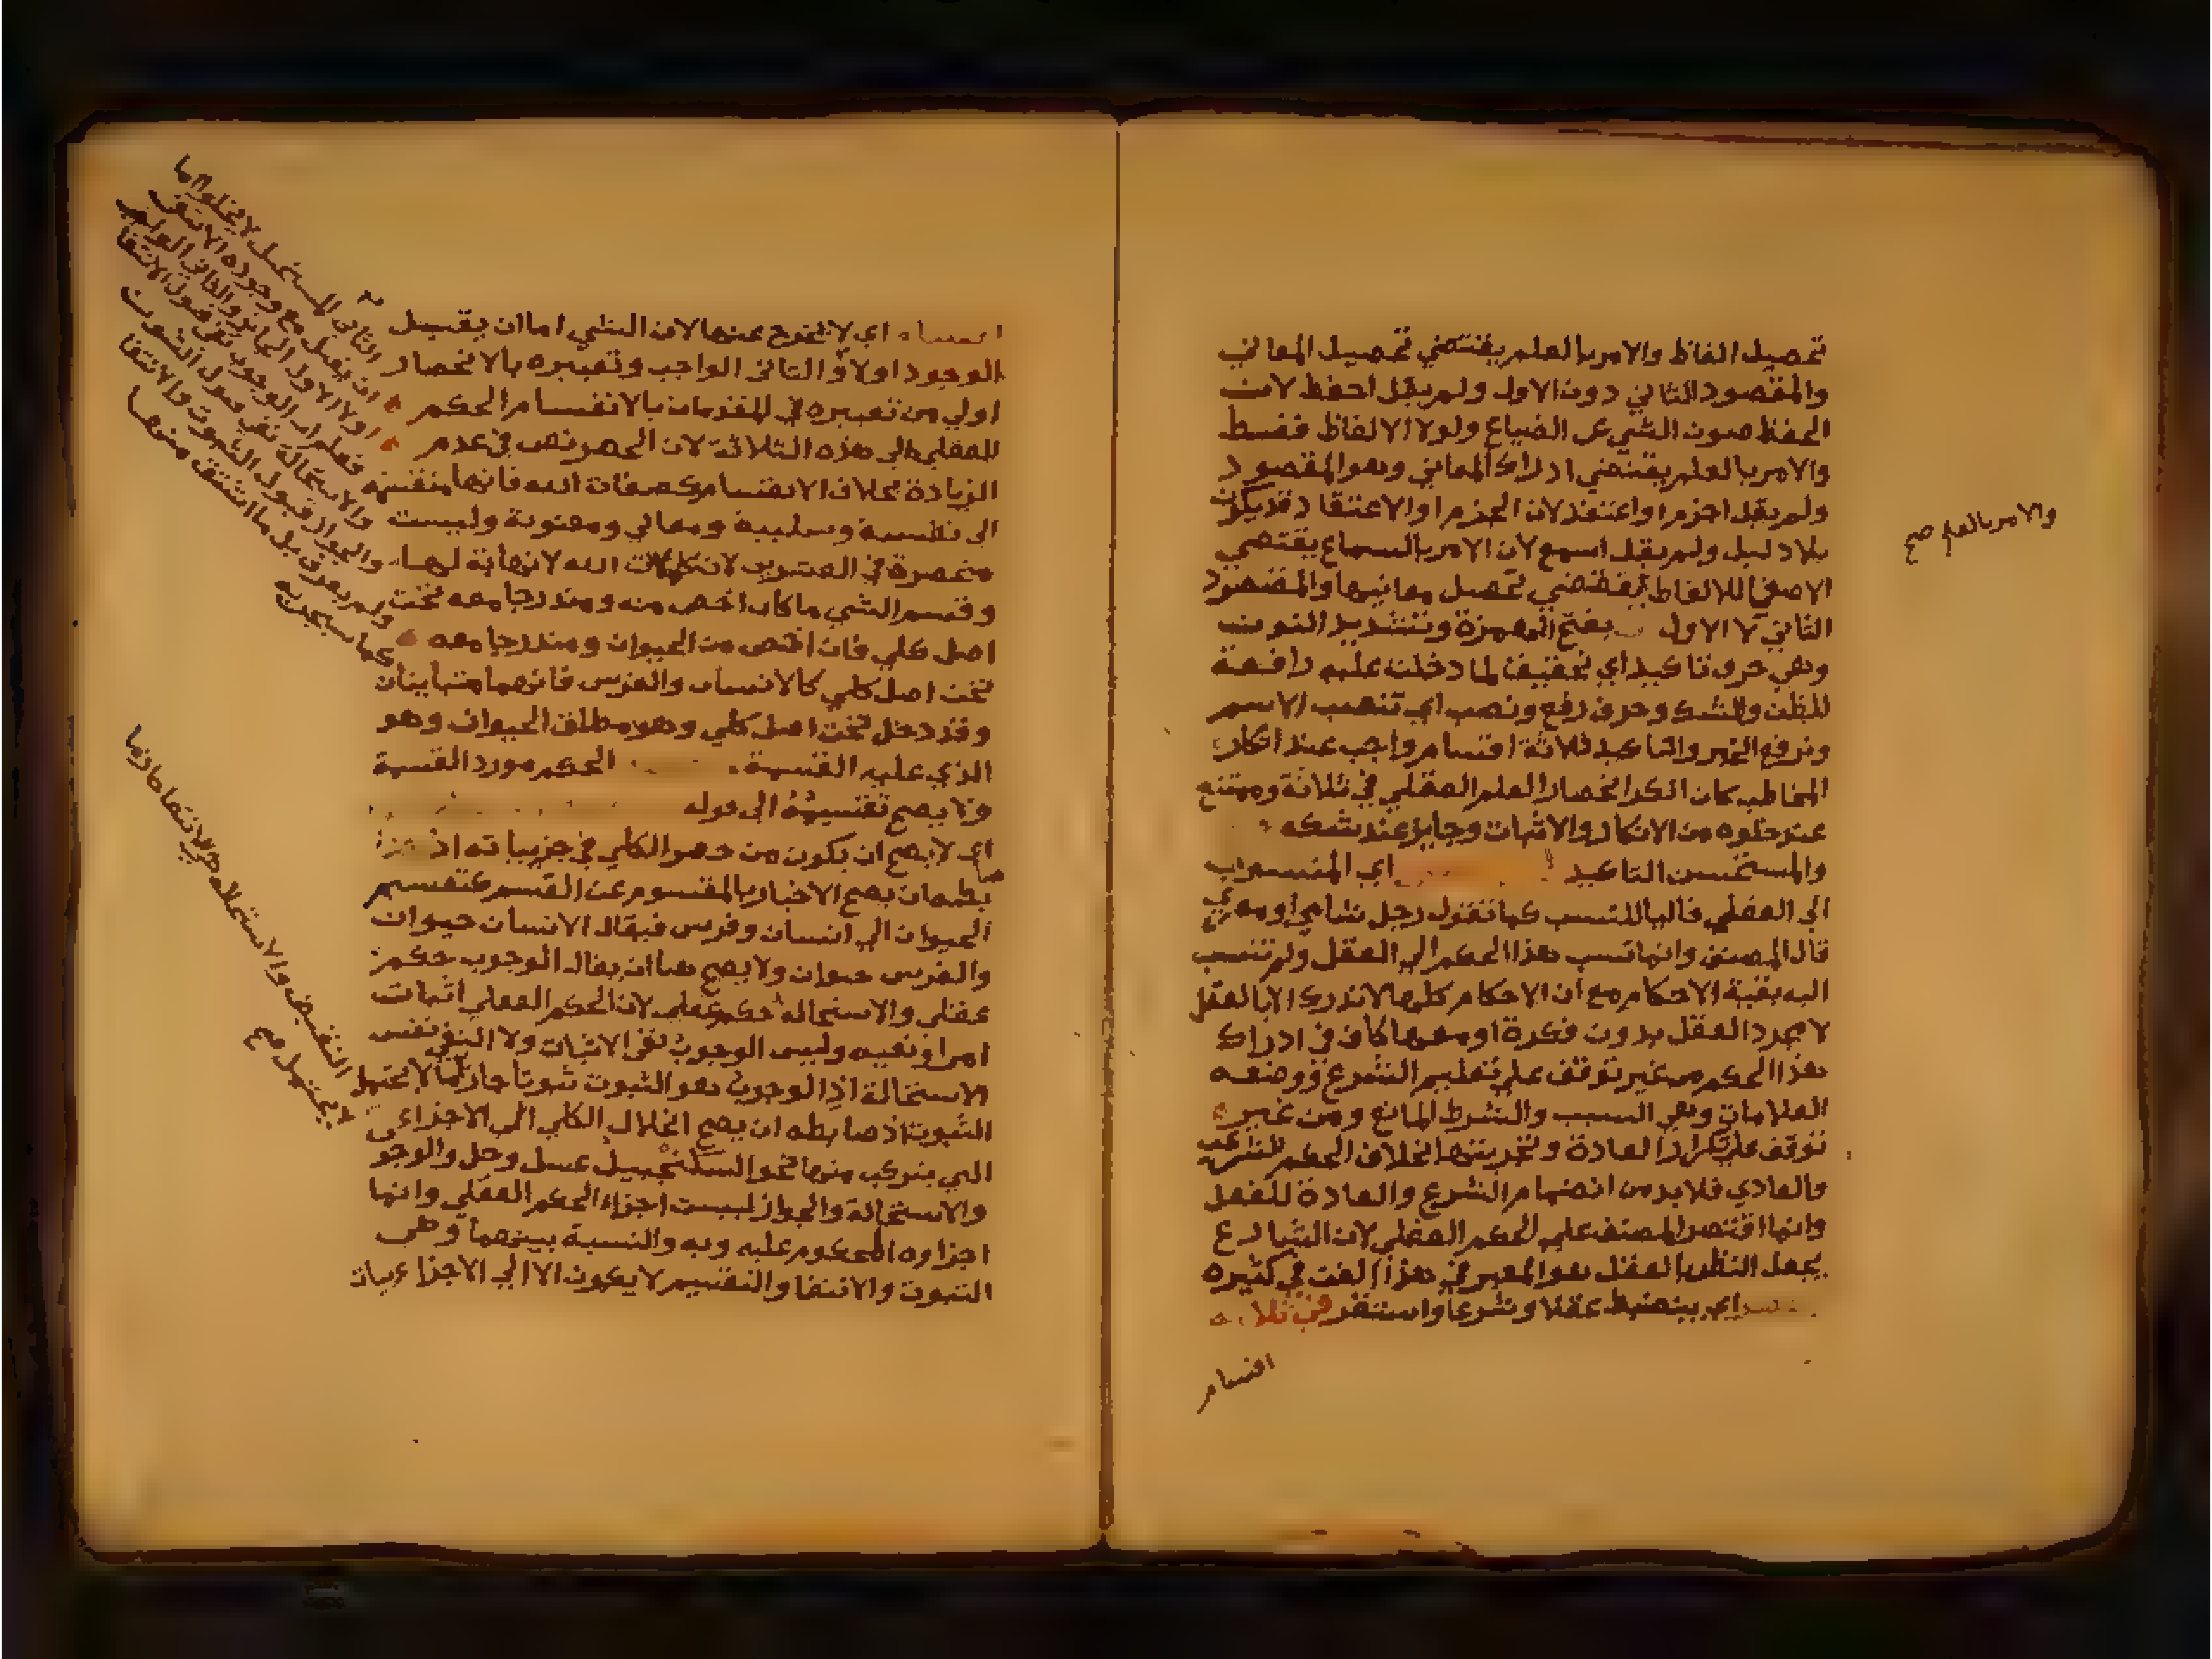 تحصيل الفاظ والامر بالعلم يقتضي تحصيل المعاني
والمقصود الثاني دون الاول ولم يقل احفظ لان
الحفظ صون الشي عن الضياع ولولا الالفاظ فقط
والامر بالعلم يقتضي ادراك المعاني وهو المقصود
ولم يقل اجزم او اعتقد لان الجزم او الاعتقاد قد يكون
بلا دليل ولم يقل اسمع لان الامر بالسماع يقتضي
الاصغا للالفاظ لا يقتضي تحصيل معانيها والمقصود
الثاني لا الاول بفتح الهمزة وتشديد النون
وهي حرف تاكيد اي تحقيق لما دخلت عليه رافعة
للظن والشك وحرف رفع ونصب اي تنصب الاسم
وترفع الخبر والتاكيد ثلاثة اقسام واجب عند انكار
المخاطب كان انكر انحصار العلم العقلي في ثلاثة وممتنع
عند خلوه من الانكار والاثبات وجايز عند شكه
والمستحسن التاكيد اي المنسوب
الى العقلي فاليا للنسب كما تقول رجل شامي او مصري
قال المصنف وانما نسب هذا الحكم الى العقل ولم تنسب
اليه بقية الاحكام مع ان الاحكام كلها لا تدرك الا بالعقل
لا مجرد العقل بدون فكرة او معها كاف في ادراك
هذا الحكم من غير توقف على تعليم الشرع ووضعه
العلامات وهي السبب والشرط المانع ومن غير
توقف على تكرار العادة وتجربتها بخلاف الحكم الشرعي
والعادي فلا بد من انضمام الشرع والعادة للعقل
وانما اقتصر المصنف على الحكم العقلي لان الشارع
يجعل النظر بالعقل هو المعبر في هذا الفن في كثيره
اي ينضبط عقلا وشرعا واستقر في ثلاثة
اقسام
والامر بالعلم صح
اقسام اي لا تخرج عنها لان الشي اما ان يقبل
الوجود اولا والثاني الواجب وتعبيره بالانحصار
اولي من تعبيره في المقدمات بالانقسام الحكم
العقلي الى هذه الثلاثة لان الحصر نص في عدم
الزيادة بخلاف الانقسام كصفات الله فانها منقسمة
الى نفسية وسلبية ومعاني ومعنوية وليست
منحصرة في العشرين لان كمالات الله لا نهاية لها
وقسم الشي ما كان اخص منه ومندرجا معه تحت
اصل كلي فان اخص من الحيوان ومندرجا معه
تحت اصل كلي كالانسان والفرس فانهما متباينان
وقد دخل تحت اصل كلي وهو مطلق الحيوان وهو
الذي عليه القسمة الحكم مورد القسمة
ولا يصح تقسيمه الى قوله
اي لا يصح ان يكون من حصر الكلي في جزيياته اذ هذا
ضابطه ان يصح الاخبار بالمقسوم عن القسم كتقسيم
الحيوان الى انسان وفرس فيقال الانسان حيوان
والفرس حيوان ولا يصح هنا ان يقال الوجوب حكم
عقلي والاستحالة حكم عقلي لان الحكم العقلي اثبات
امر او نفيه وليس الوجوب نفس الاثبات ولا النفي نفس
الاستحالة اذ الوجوب هو الثبوت ثبوتا جازما لا يحتمل
الثبوت اذ ضابطه ان يصح انحلال الكلي الى الاجزاء
التي يتركب منها نحو السكنجبيل عسل وخل والوجو
والاستحالة والجواز ليست اجزاء الحكم العقلي وانما
اجزاوه المحكوم عليه وبه والنسبة بينهما وهي
الثبوت والانتفا والتقسيم لا يكون الا الى الاجزاء
الثاني المستحيل لا يخلو اما
ان يقبل مع وجوده الانتفى
اولا الاول الجايز والثاني الواجب
فعلم ان الوجوب نفي قبول الانتفا
والاستحالة نفي قبول الثبوت
والجواز قبول الثبوت والانتفا
ولم يعرف بل ما اشتق منها
كما سيجي به
النقيض والاستحالة هي الانتفا جازما
لا يحتمل صح